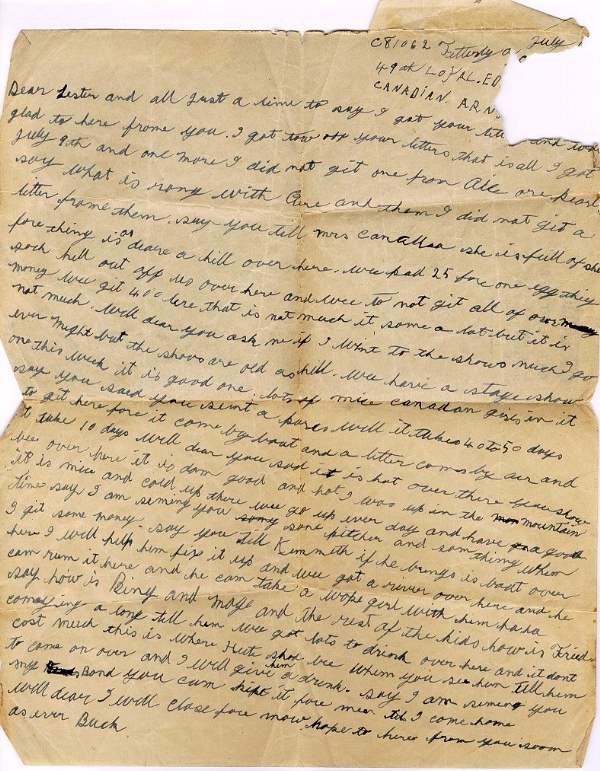 C81062 Fetterly July
49th LOYAL. ED
CANADIAN. ARM
Dear Lester and all Just a line to say I got your lett and was
glad to here frome you. I got tow off your letters that is all I got
July 9th and one more I did not git one from Alle ore pearl
say what is rong with Care and them I did not git a
letter frome them. say you tell mrs canallaa she is full of she
fore theny is as deare a hill over here. wee pad 25 fore one egg they
soch hell out off us over here and wee to not git all of our
money wee git 400 lire that is not much it some a lot but it is
not much. Will dear you ask me if I Wint to the shows much I go
ever night but the shows are old as hill. We have a stage show
one this week it is good one. lots of mice canadan girs in it
say you said you sent a parsel will it takes 40 to 50 days
to git here fore it come by boat and a litter coms by air and
it take 10 days will dear you said it is hat over there you show
bee over here it is dom good and hot I was up in the mountain
it is nice and cold up there wee go up ever day and have a good
time say I am sinning you some pitcher and som thing when
I git some money. say you tell Kemmith if he brings is boat over
here I will help him fixe it up and wee got a river over here and he
can run it here and he can take a wope girl with him haha
say how is Biny and maye and the rest of the kids how is Fried
comeying a long till him wee got lots to drink over here and it dont
cost much this is where Hute shoe bee whem you see him till him
to come on over and I will give him a drink. say I am sinning you
my Bond you cam kept it fore mee til I come home
Will dear I will close fore now hope to here from you soom
as ever Buck